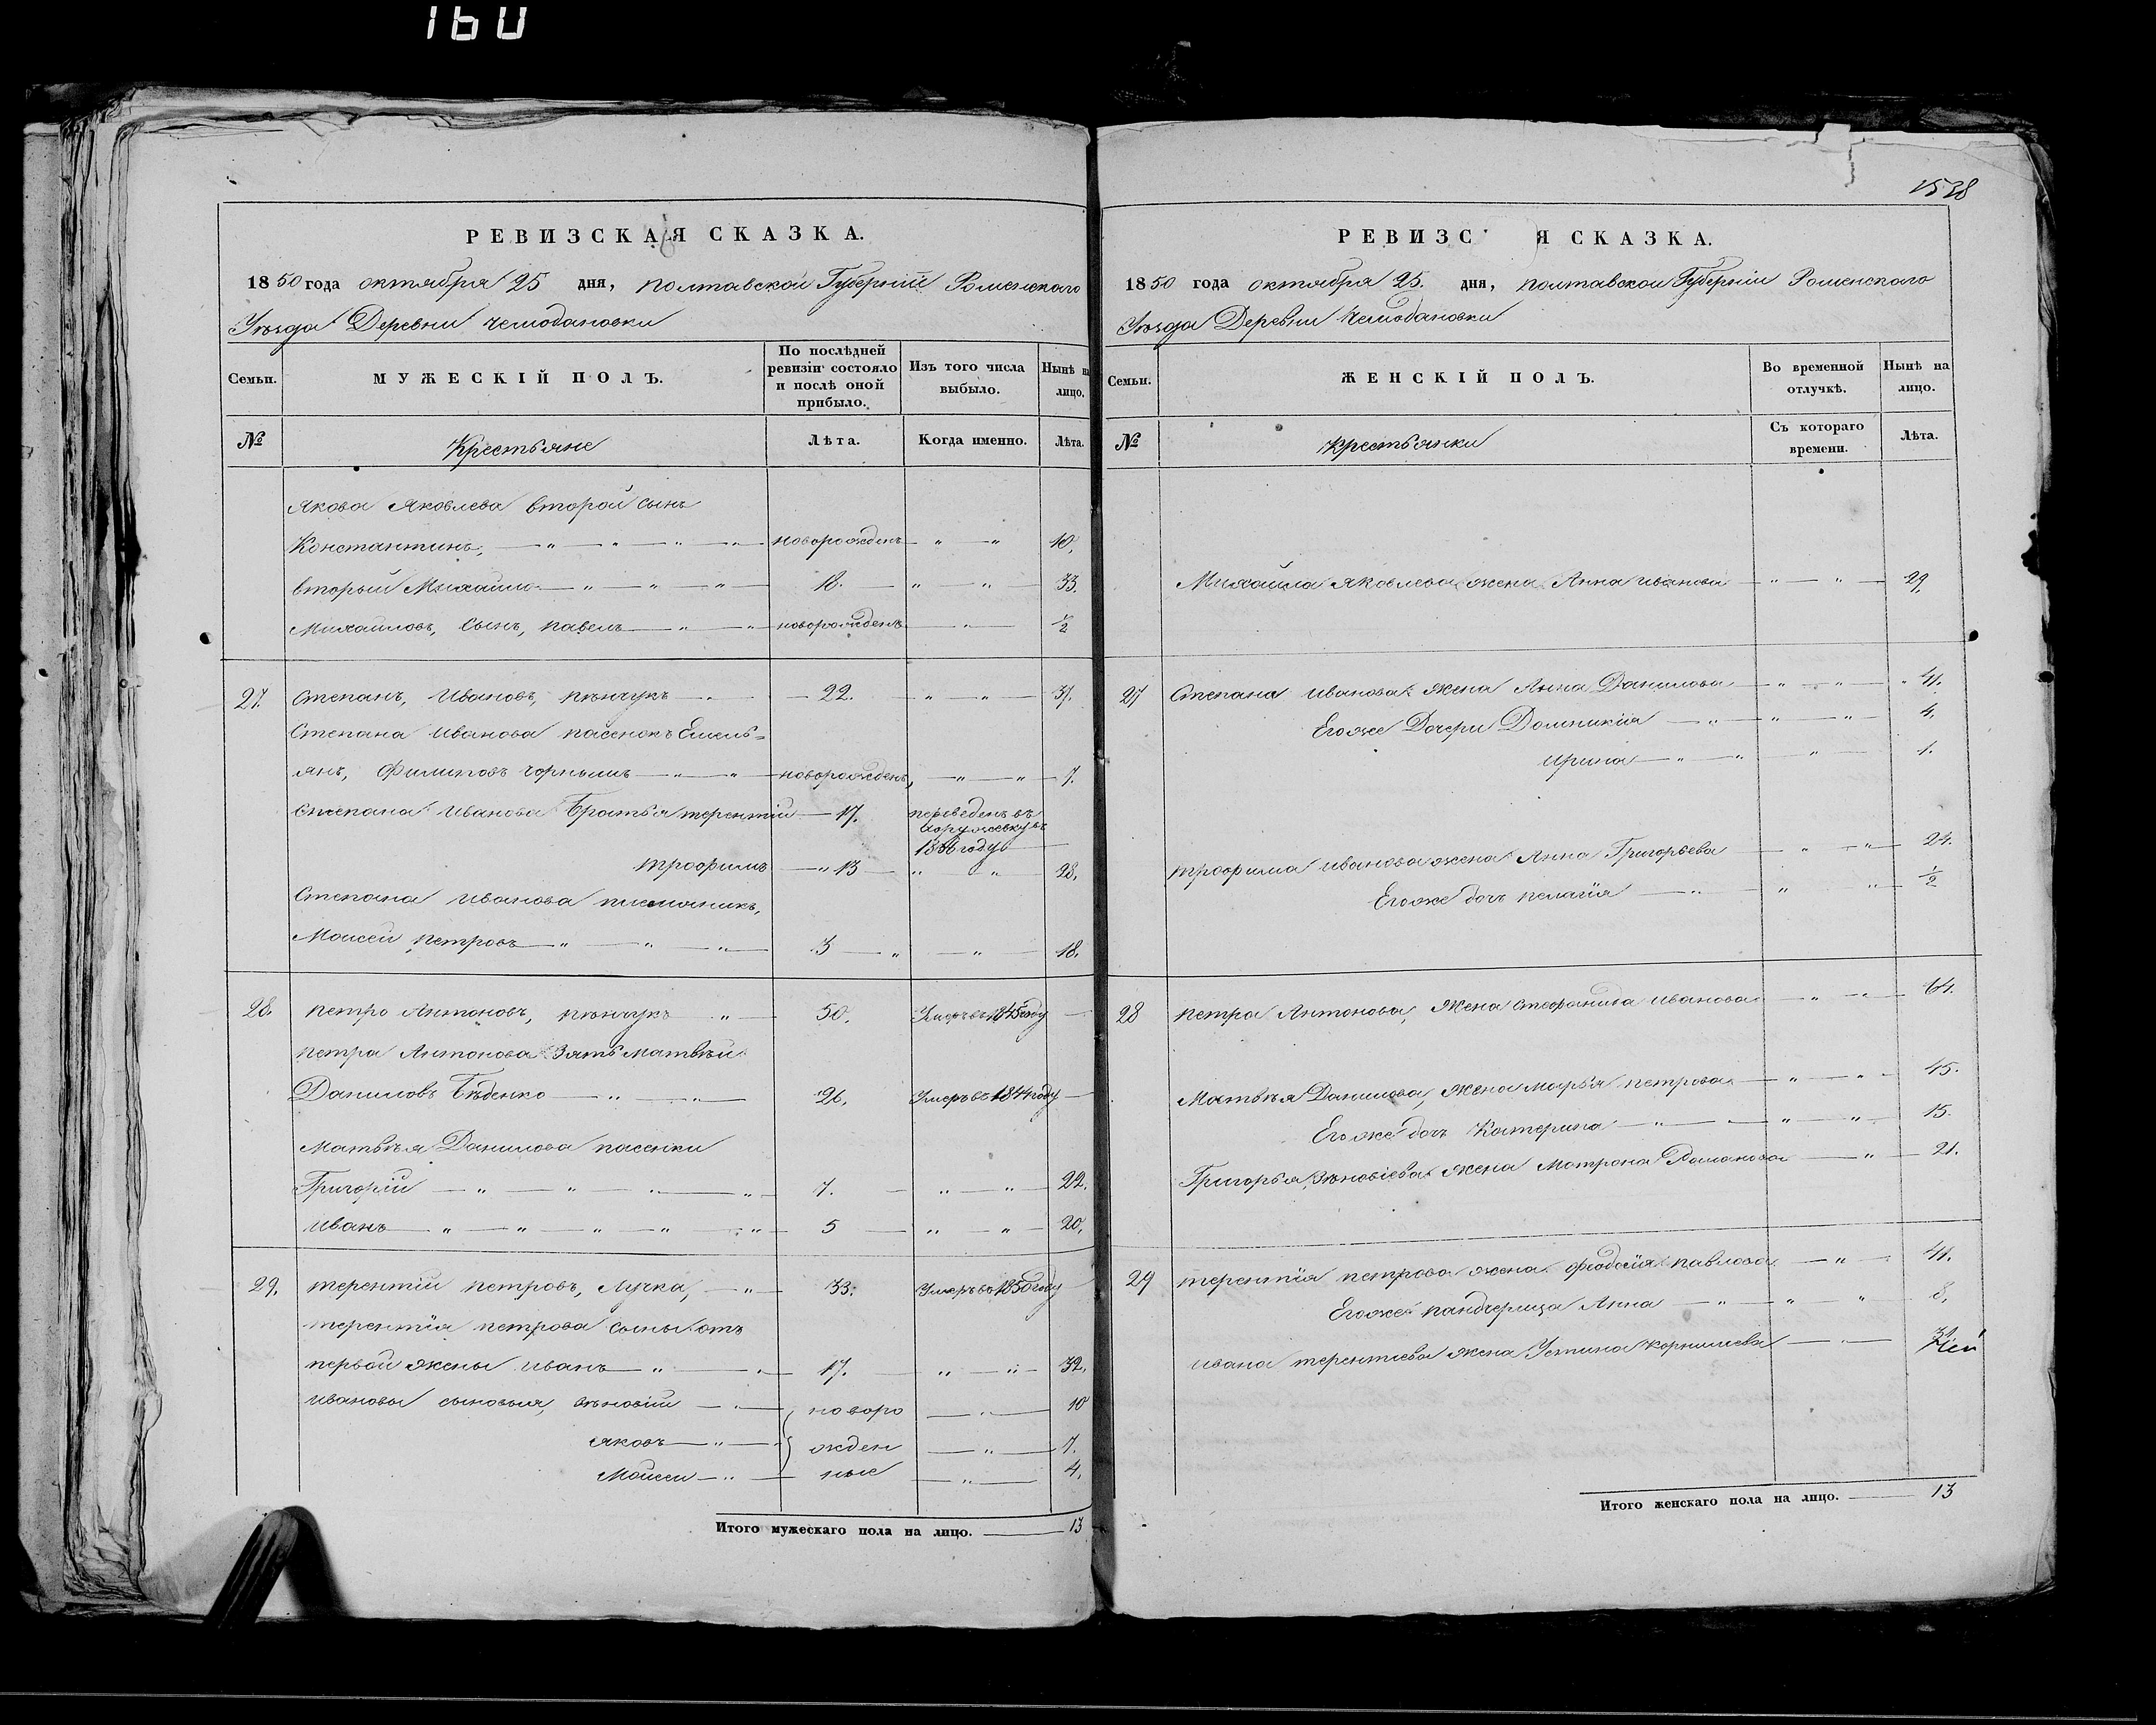 160
РЕВИЗСКАЯ СКАЗКА.
1850 года октября 25 дня, полтавской Губерній Роменского
Уѣзда Деревни чемодановки
Семьи.
МУЖЕСКІЙ ПОЛЪ.
По послѣдней ревизіи состояло и послѣ оной прибыло.
Изъ того числа выбыло.
Нынѣ на лицо.
№
Крестьяне
Лѣта.
Когда именно.
Лѣта.
Якова Яковлева второй сынъ
Константинъ, новорожденъ 10,
вторый Михайло 18. 33.
Михайловъ, сынъ, павелъ новорожденъ ½
27. степанъ, Ивановъ, 22. 37.
Степана Иванова пасенокъ Емель=
янъ, Филиповъ чорнышъ новорожденъ, 7.
степана Иванова Братья терентій 17. переведенъ въ
году
трофимъ 13 28,
Степана Иванова племяникъ,
Моисей петровъ 3 18.
28. петро Антоновъ, 50. Умеръ въ 1845 году
петра Антонова Зять матвѣй
Даниловъ Бѣденко 26, Умеръ въ 1844 году
Матвѣя Данилова пасенки
Григорій 7. 22.
иванъ 5 20,
29. терентій петровъ, Лучка, 33. Умеръ въ 1850 году
терентія петрова сыны отъ
первой жены иванъ 17. 32,
ивановы сыновья, зѣновій новоро 10
яковъ жден 7.
Моисей ные 4,
Итого мужескаго пола на лицо. 13
1538
РЕВИЗС Я СКАЗКА.
1850 года октября 25. дня, полтавской Губерніи Роменского
Уѣзда Деревни Чемодановки
Семьи.
ЖЕНСКІЙ ПОЛЪ.
Во временной отлучкѣ.
Нынѣ на лицо.
№
крестьянки
Съ котораго времени.
Лѣта.
Михайла яковлева жена Анна иванова 29,
27 Степана иванова жена Анна Данилова 41.
Егоже Дочери Домникія 4,
ирина 1.
трофима иванова жена Анна Григорьева 24.
Егоже дочъ пелагія ½
28 петра Антонова, Жена стефанида иванова 61.
Матвѣя Данилова, Жена марья петрова 45.
Егоже дочъ Катерина 15.
Григорья, Зѣновіева жена Мотрона Романова 21.
29 терентія петрова жена феодосія павлова 41.
Егоже падчерица Анна 8,
ивана терентиева жена Устина корнилиева
Итого женскаго пола на лицо. 13